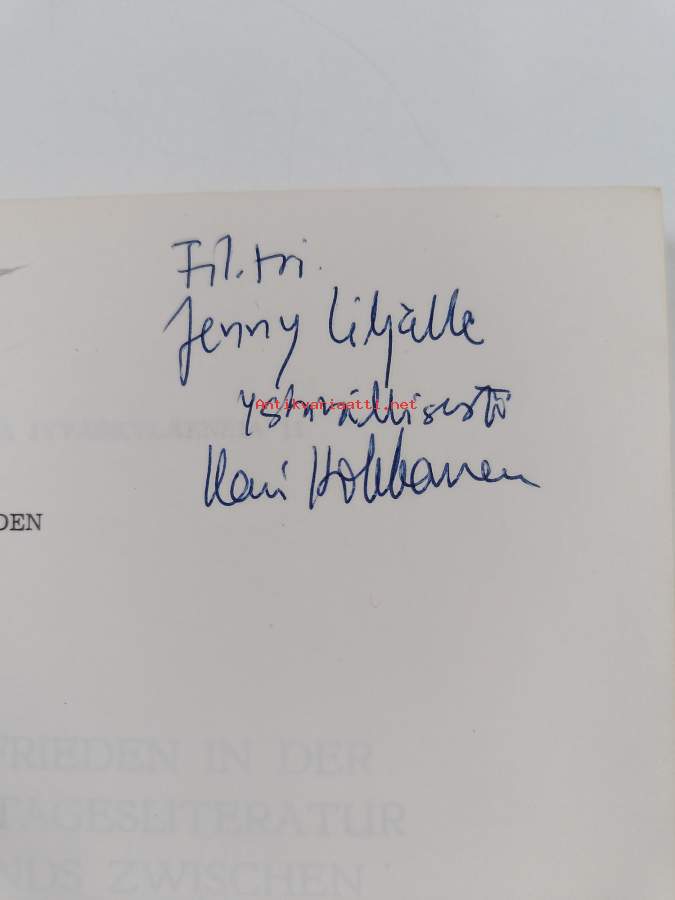 Fil. tri.
Jenny Liljalle
ystävällisesti
Antikvariaatti.net
Kari Hokkanen
DEN
FRIEDEN IN DER
TAGESLITERATUR
NDS ZWISCHEN